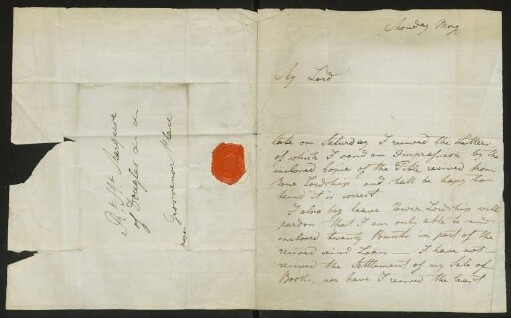 Monday Morg
My Lord
late on Saturday I received the Letters
of which I send an Impression by the
inclosed Copies of the Title received from
your Lordship and shall be happy to
find it is correct.
I also beg leave Your Lordship will
pardon that I am only able to send
inclosed twenty Pounds in part of the
kind Loan — I have not
received the Settlement of my Sale of
Books, nor have I received the least
Marquis
of Douglas &c &c
Grosvenor Place